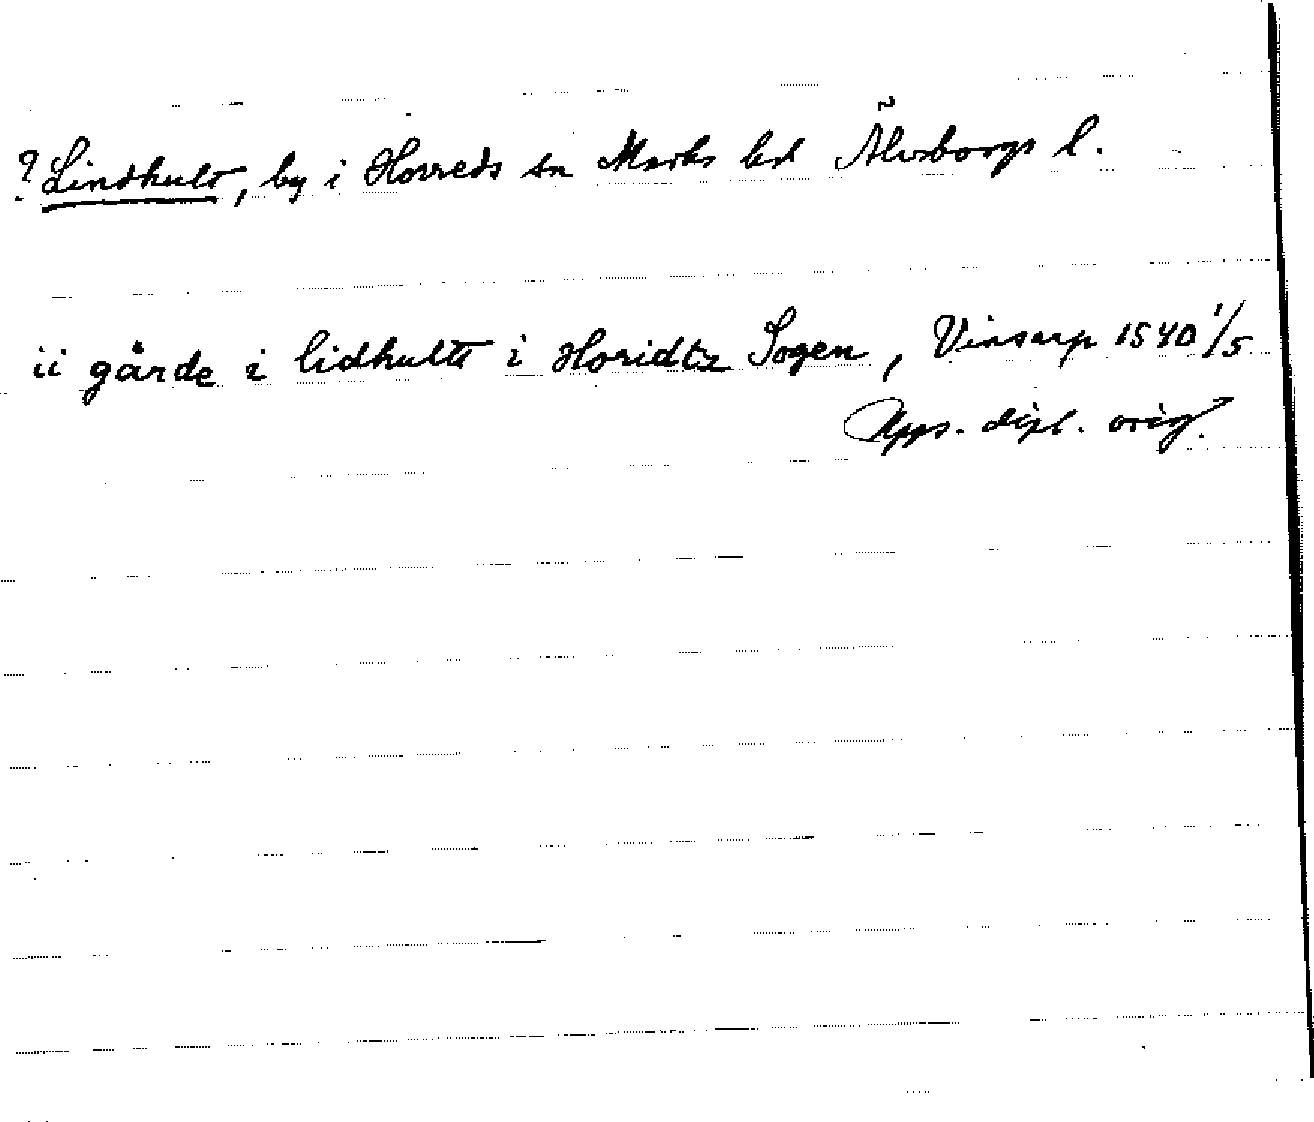 ? Lindhult, by i Horreds sn Marks hd Älvsborgs l.
ii gårde i lidhultt i Horidtz Sogen, Vinsarp 1540 1/5
Upps. dipl. orig.